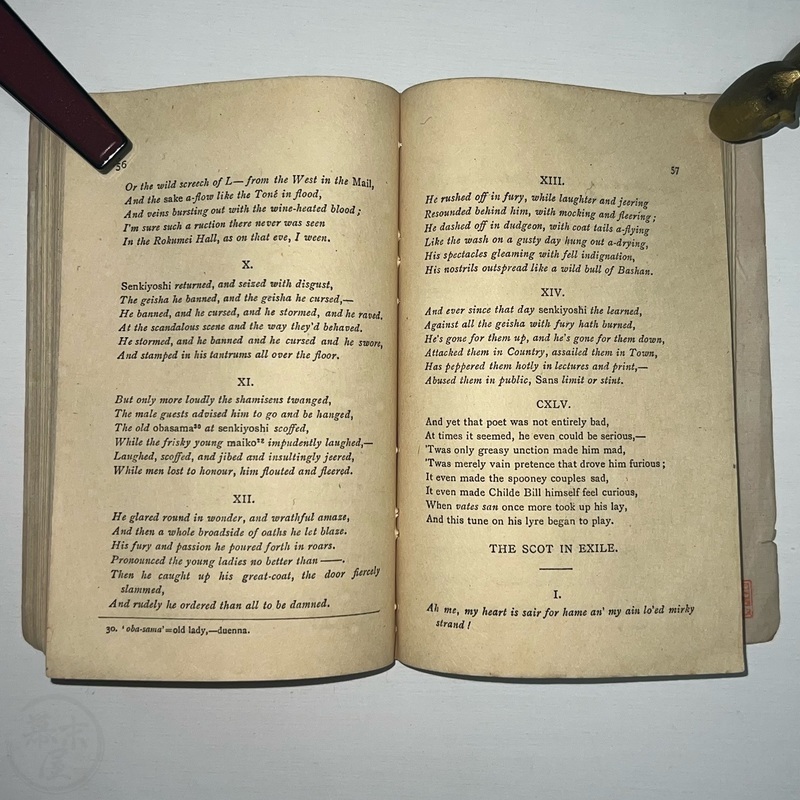 56
Or the wild screech of L— from the West in the Mail,
And the sake a-flow like the Toné in flood,
And veins bursting out with the wine-heated blood;
I'm sure such a ruction there never was seen
In the Rokumei Hall, as on that eve, I ween.
X.
Senkiyoshi returned, and seized with disgust,
The geisha he banned, and the geisha he cursed,—
He banned, and he cursed, and he stormed, and he raved.
At the scandalous scene and the way they'd behaved.
He stormed, and he banned and he cursed and he swore,
And stamped in his tantrums all over the floor.
XI.
But only more loudly the shamisens twanged,
The male guests advised him to go and be hanged,
The old obasama³⁰ at senkiyoshi scoffed,
While the frisky young maiko¹² impudently laughed,—
Laughed, scoffed, and jibed and insultingly jeered,
While men lost to honour, him flouted and fleered.
XII.
He glared round in wonder, and wrathful amaze,
And then a whole broadside of oaths he let blaze.
His fury and passion he poured forth in roars.
Pronounced the young ladies no better than ——.
Then he caught up his great-coat, the door fiercely
slammed,
And rudely he ordered than all to be damned.
30. 'oba-sama'=old lady,—duenna.
57
XIII.
He rushed off in fury, while laughter and jeering
Resounded behind him, with mocking and fleering;
He dashed off in dudgeon, with coat tails a-flying
Like the wash on a gusty day hung out a-drying,
His spectacles gleaming with fell indignation,
His nostrils outspread like a wild bull of Bashan.
XIV.
And ever since that day senkiyoshi the learned,
Against all the geisha with fury hath burned,
He's gone for them up, and he's gone for them down,
Attacked them in Country, assailed them in Town,
Has peppered them hotly in lectures and print,—
Abused them in public, Sans limit or stint.
CXLV.
And yet that poet was not entirely bad,
At times it seemed, he even could be serious,—
'Twas only greasy unction made him mad,
'Twas merely vain pretence that drove him furious;
It even made the spooney couples sad,
It even made Childe Bill himself feel curious,
When vates san once more took up his lay,
And this tune on his lyre began to play.
THE SCOT IN EXILE.
I.
Ah me, my heart is sair for hame an' my ain lo'ed mirky
strand!